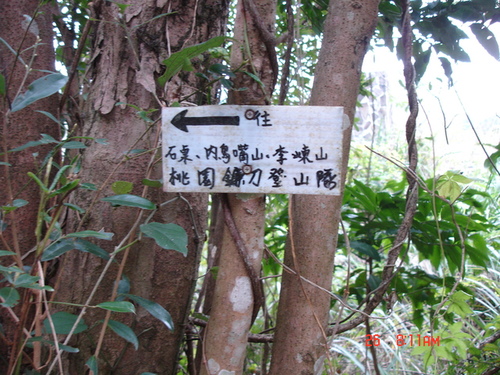 往
石桌、內鳥嘴山、李崠山
桃園鐮刀登山隊
26 8:11AM